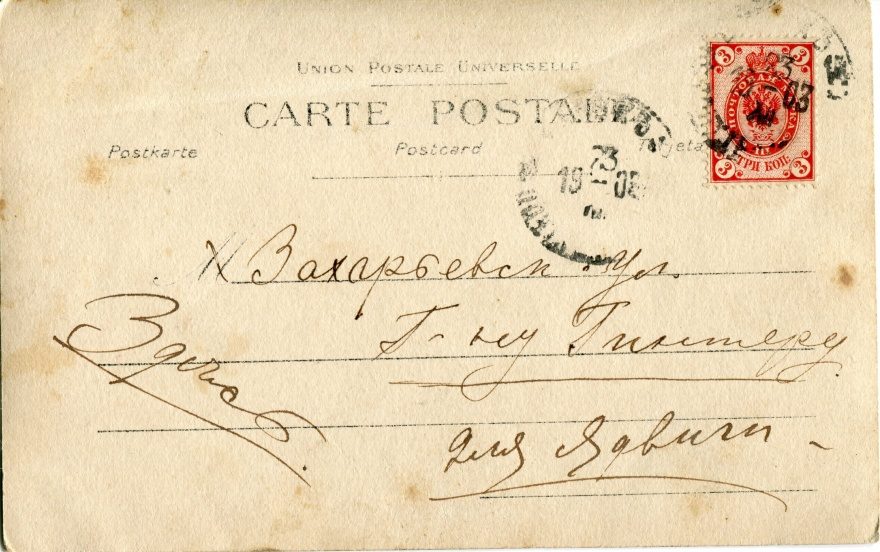 UNION POSTALE UNIVERSELLE
CARTE POSTALE
Postkarte Postcard Tarjeta
3 3
ПОЧТОВАЯ МАРКА
3 ТРИ КОП. 3
23
03
23
19 03
Захарьевск. ул.
Г-ну Гинтеру
Здесь.
для Ядвиги